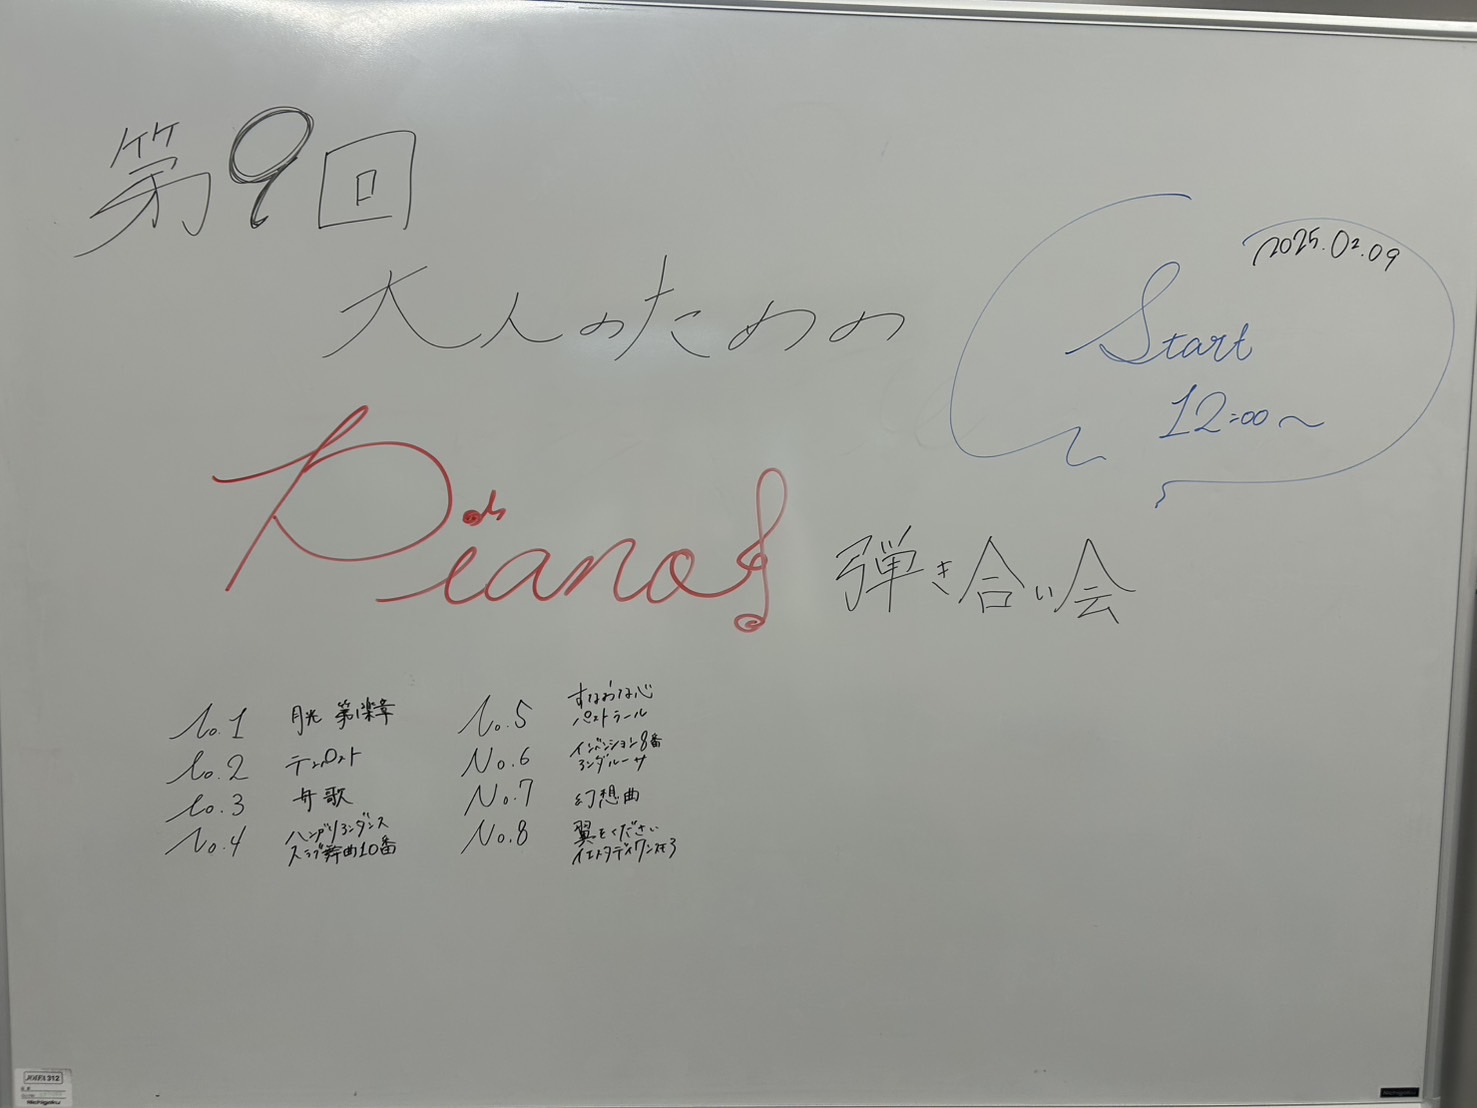 第9回
大人のための
Piano 弾き合い会
2025.02.09
Start
12:00〜
No.1 月光 第1楽章
No.2
No.3 舟歌
No.4 ハンガリアンダンス
スラブ舞曲10番
No.5 すなおな心
パストラール
No.6 インベンション8番
アンダルーサ
No.7 幻想曲
No.8 翼をください
312